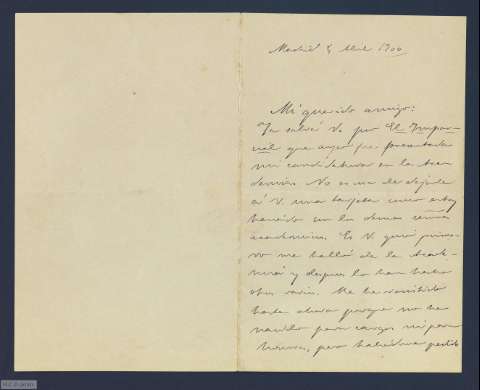 Madrid 5 Abril 1900
Mi querido amigo:
Ya sabrá V. por El Impar-
cial que ayer fué presentada
mi candidatura en la Aca-
demia. No es me le dejado
á V. una tarjeta como estoy
haciendo con los demas
académicos. Es V. quien prime-
ro me habló de la Acade-
mia y despues lo han hecho
otros varios. Me he resistido
hasta ahora porque no he
nacido para cargos ni para
honores, pero habiéndose